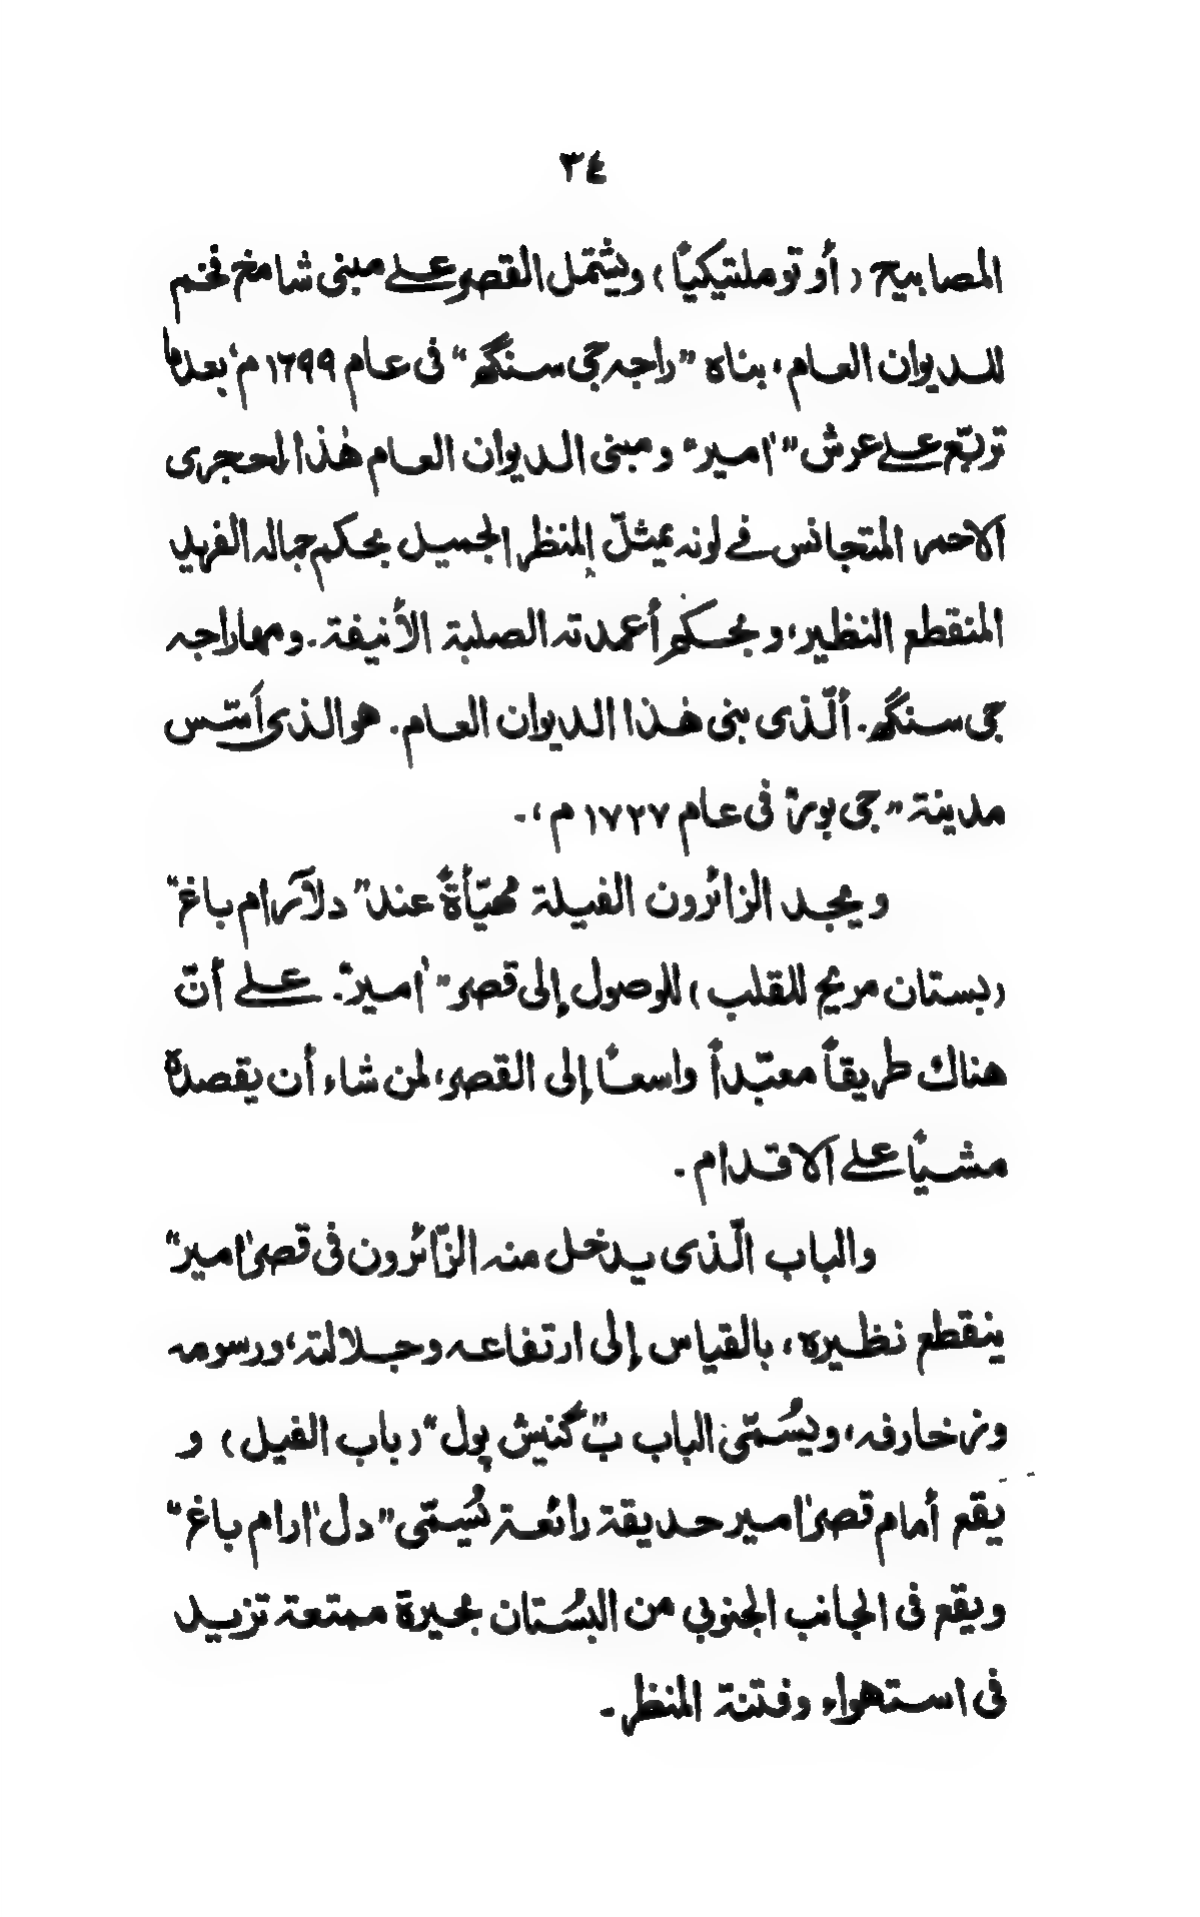 ٣٤
المصابيح (أوتوملتيكياً) ويشتمل القصر على مبنى شامخ فخم
للديوان العام، بناه "راجه جى سنگھ" فى عام ١٦٩٩م، بعدما
تربّع على عرش "اٰمير" ومبنى الديوان العام هٰذا الحجرى
الاحمر المتجانس فى لونه يمثلّ المنظر الجميل بحكم جماله الفريد
المنقطع النظير، وبحكم أعمدته الصلبة الأنيفة. ومهاراجه
جى سنگھ. ألّذى بنى هٰذا الديوان العام. هو الذى أسّس
مدينة "جى بور" فى عام ١٧٢٧م،.
ويجد الزائرون الفيلة مهيّأةً عند "دلآرام باغ"
(بستان مريح للقلب) للوصول إلى قصر "اٰمير". على أنّ
هناك طريقاً معبّداً واسعاً إلى القصر، لمن شاء أن يقصده
مشياً على الاقدام.
والباب الّذى يدخل منه الزّائرون فى قصر "اٰمير"
ينقطع نظيره، بالقياس إلى ارتفاعه وجلالته، ورسومه
وزخارفه، ويسُمّى الباب بـ"گنيش پول" (باب الفيل) و
يقع أمام قصر اٰمير حديقة رائعة تسُمّى "دل اٰرام باغ"
ويقع فى الجانب الجنوبي من البسُتان بحيرة ممتعة تزيد
فى استهواء وفتنة المنظر.